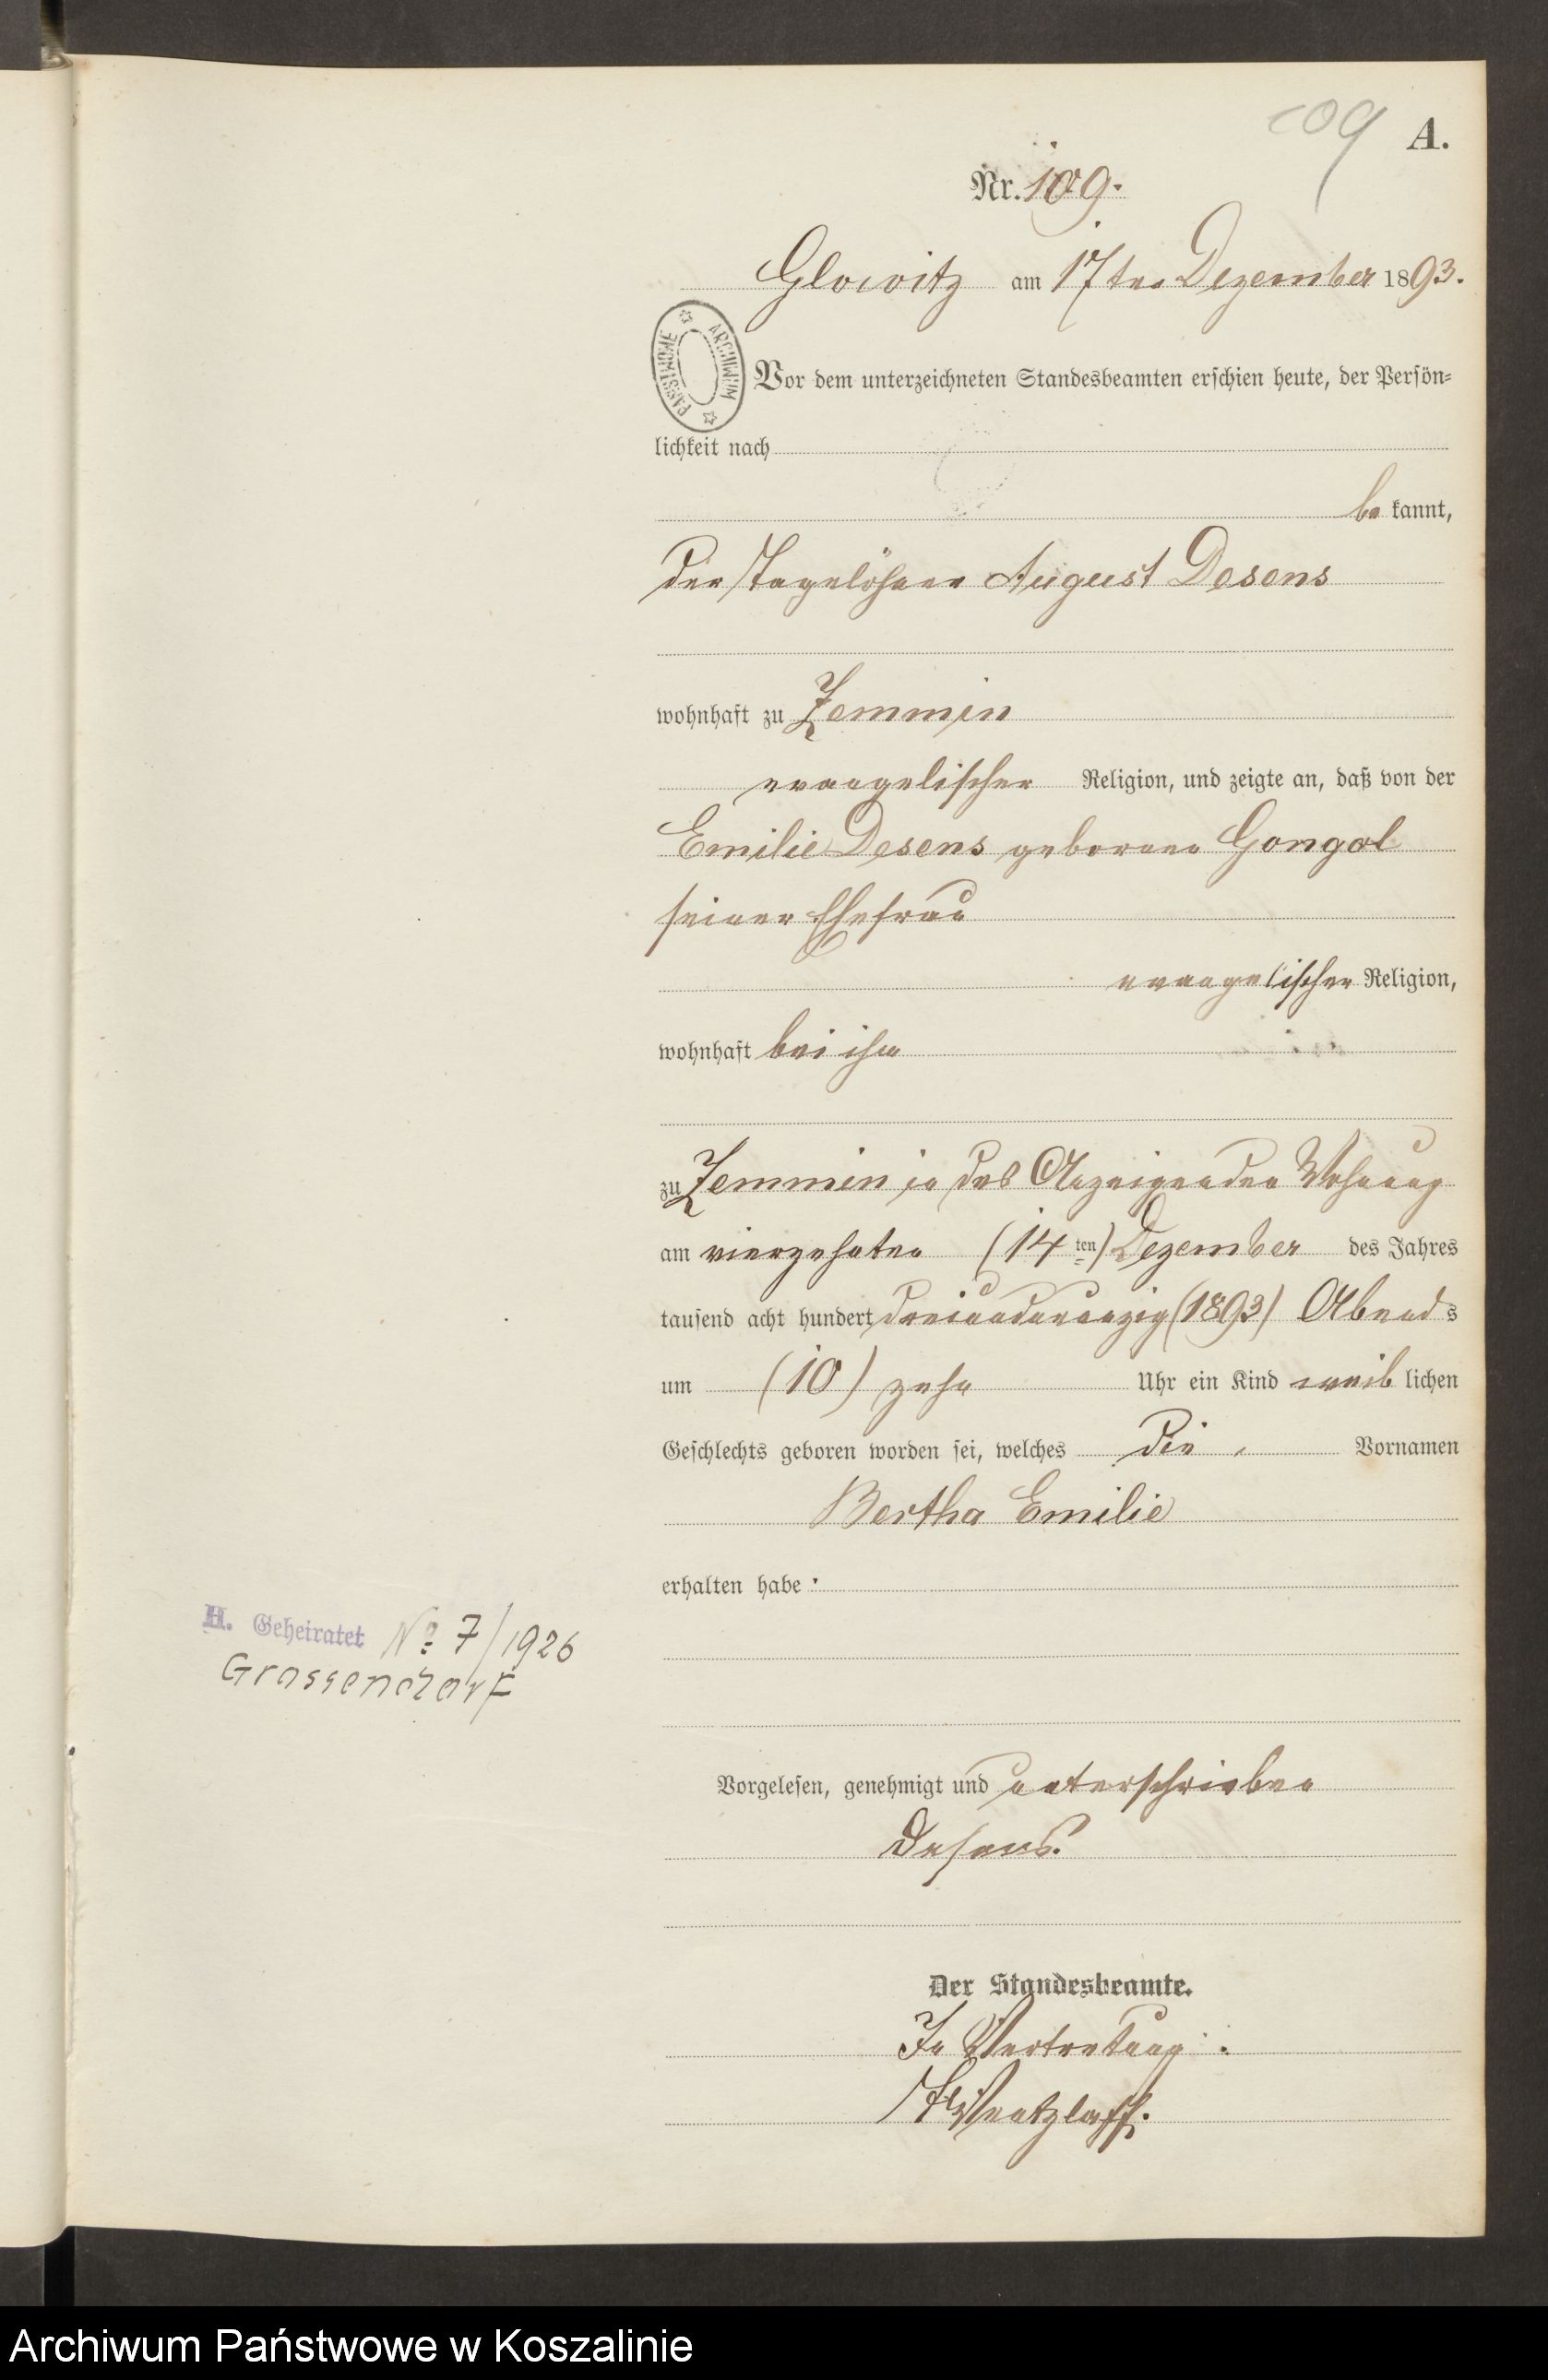 109
A.
Nr. 109.
Glowitz am 17ten Dezember 1893.
ARCHIWUM PAŃSTWOWE
Vor dem unterzeichneten Standesbeamten erschien heute, der Persön-
lichkeit nach
be kannt,
der Tagelöhner August Desens
wohnhaft zu Zemmin
evangelischer Religion, und zeigte an, daß von der
Emilie Desens geborene Gongol
seiner Ehefrau
evangelischer Religion,
wohnhaft bei ihm
zu Zemmin in des Anzeigenden Wohnung
am vierzehnten (14 ten) Dezember des Jahres
tausend acht hundert dreiundneunzig (1893) Abends
um (10) zehn Uhr ein Kind weib lichen
Geschlechts geboren worden sei, welches die Vornamen
Bertha Emilie
erhalten habe.
H. Geheiratet No 7/1926
Grossendorf
Vorgelesen, genehmigt und unterschrieben
Desens.
Der Standesbeamte.
In Vertretung.
Wentzlaff.
Archiwum Państwowe w Koszalinie